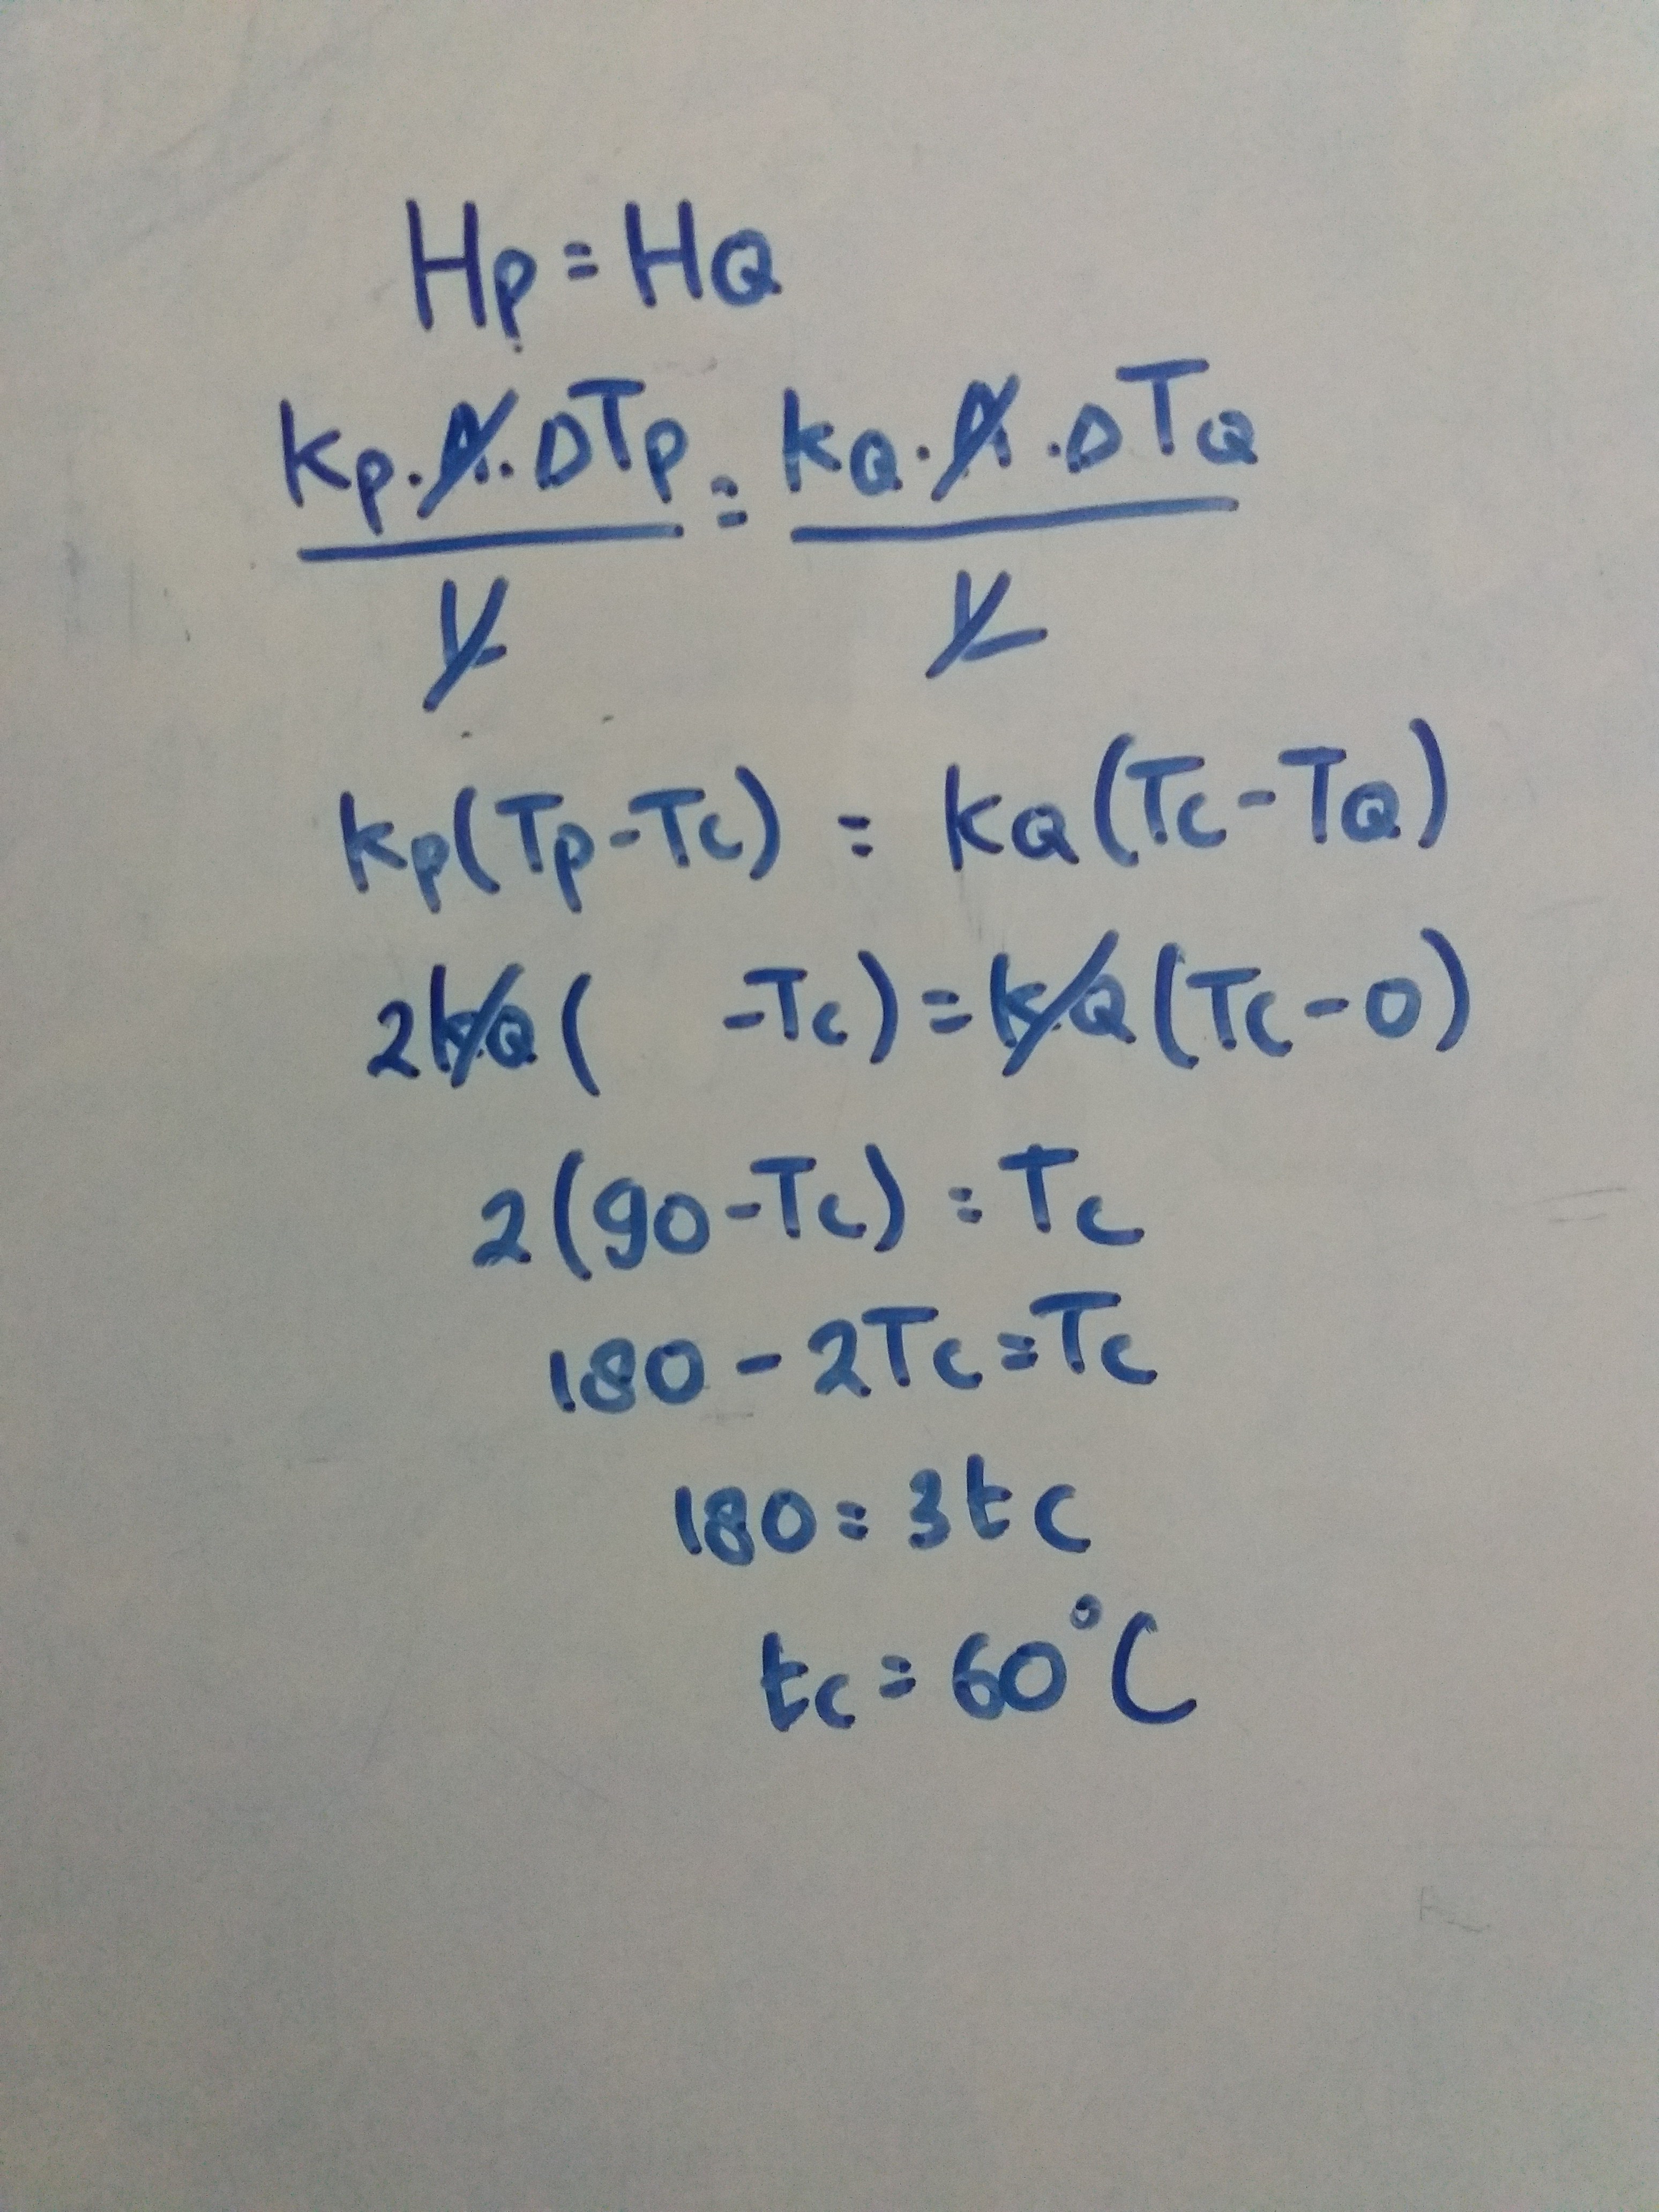 Hp = HQ
kp.A.ΔTp = kQ.A.ΔTQ
L L
kp(Tp-Tc) = kQ(Tc-TQ)
2kQ( -Tc) = kQ(Tc-0)
2(90-Tc) = Tc
180 - 2Tc = Tc
180 = 3tc
tc = 60°C